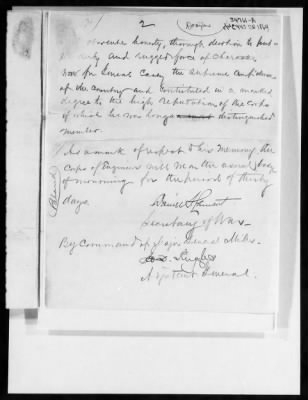 2
His sincere honesty, thorough devotion to pub-
lic duty and rugged force of character
won for General Casey the supreme confidence
of the country and contributed in a marked
degree to the high reputation of the Corps
of which he was long a distinguished
member.
As a mark of respect to his memory the
Corps of Engineers will wear the usual badge
of mourning for the period of thirty
days.
Daniel S Lamont
Secretary of War.
By Command of Major General Miles.
Geo. D. Ruggles
Adjutant General.